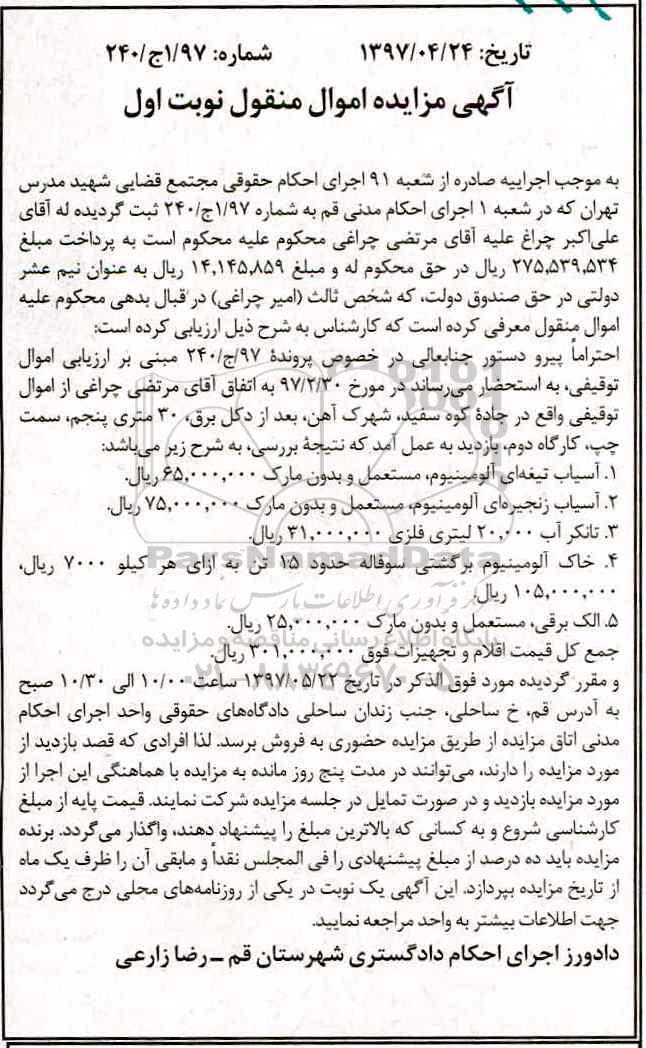 تاریخ: ۱۳۹۷/۰۴/۲۴ شماره: ۱/۹۷ج/۲۴۰
آگهی مزایده اموال منقول نوبت اول
به موجب اجراییه صادره از شعبه ۹۱ اجرای احکام حقوقی مجتمع قضایی شهید مدرس
تهران که در شعبه ۱ اجرای احکام مدنی قم به شماره ۱/۹۷ج/۲۴۰ ثبت گردیده له آقای
علی‌اکبر چراغ علیه آقای مرتضی چراغی محکوم علیه محکوم است به پرداخت مبلغ
۲۷۵,۵۳۹,۵۳۴ ریال در حق محکوم له و مبلغ ۱۴,۱۴۵,۸۵۹ ریال به عنوان نیم عشر
دولتی در حق صندوق دولت، که شخص ثالث (امیر چراغی) در قبال بدهی محکوم علیه
اموال منقول معرفی کرده است که کارشناس به شرح ذیل ارزیابی کرده است:
احتراماً پیرو دستور جنابعالی در خصوص پروندهٔ ۹۷/ج/۲۴۰ مبنی بر ارزیابی اموال
توقیفی، به استحضار می‌رساند در مورخ ۹۷/۲/۳۰ به اتفاق آقای مرتضی چراغی از اموال
توقیفی واقع در جادهٔ کوه سفید، شهرک آهن، بعد از دکل برق، ۳۰ متری پنجم، سمت
چپ، کارگاه دوم، بازدید به عمل آمد که نتیجهٔ بررسی، به شرح زیر می‌باشد:
۱. آسیاب تیغه‌ای آلومینیوم، مستعمل و بدون مارک ۶۵,۰۰۰,۰۰۰ ریال.
۲. آسیاب زنجیره‌ای آلومینیوم، مستعمل و بدون مارک ۷۵,۰۰۰,۰۰۰ ریال.
۳. تانکر آب ۲۰,۰۰۰ لیتری فلزی ۳۱,۰۰۰,۰۰۰ ریال.
۴. خاک آلومینیوم برگشتی سوفاله حدود ۱۵ تن به ازای هر کیلو ۷۰۰۰ ریال،
۱۰۵,۰۰۰,۰۰۰ ریال.
۵. الک برقی، مستعمل و بدون مارک ۲۵,۰۰۰,۰۰۰ ریال.
جمع کل قیمت اقلام و تجهیزات فوق ۳۰۱,۰۰۰,۰۰۰ ریال.
و مقرر گردیده مورد فوق الذکر در تاریخ ۱۳۹۷/۰۵/۲۲ ساعت ۱۰/۰۰ الی ۱۰/۳۰ صبح
به آدرس قم، خ ساحلی، جنب زندان ساحلی دادگاه‌های حقوقی واحد اجرای احکام
مدنی اتاق مزایده از طریق مزایده حضوری به فروش برسد. لذا افرادی که قصد بازدید از
مورد مزایده را دارند، می‌توانند در مدت پنج روز مانده به مزایده با هماهنگی این اجرا از
مورد مزایده بازدید و در صورت تمایل در جلسه مزایده شرکت نمایند. قیمت پایه از مبلغ
کارشناسی شروع و به کسانی که بالاترین مبلغ را پیشنهاد دهند، واگذار می‌گردد. برنده
مزایده باید ده درصد از مبلغ پیشنهادی را فی المجلس نقداً و مابقی آن را ظرف یک ماه
از تاریخ مزایده بپردازد. این آگهی یک نوبت در یکی از روزنامه‌های محلی درج می‌گردد
جهت اطلاعات بیشتر به واحد مراجعه نمایید.
دادورز اجرای احکام دادگستری شهرستان قم ـ رضا زارعی
ParsNamadData
مرکز فرآوری اطلاعات پارس نماد داده ها
پایگاه اطلاع رسانی مناقصه و مزایده
۰۲۱-۸۸۳۴۹۶۷۰-۵